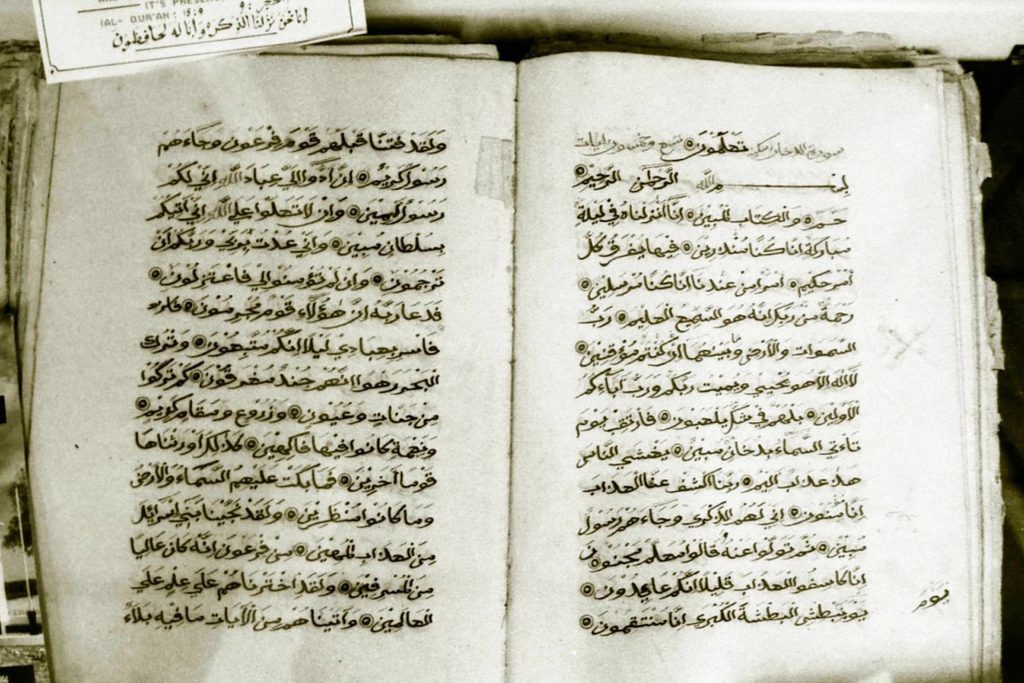 IT'S PRESE
(AL- QUR'AH : 15:9
انا نحن نزلنا الذكر وانا له لحافظون
سورة الدخان مكية تعلمون ۝ تسع وخمسون ايات
بسم الله الرحمن الرحيم ۝
حم ۝ والكتاب المبين ۝ انا انزلناه في ليلة
مباركة انا كنا منذرين ۝ فيها يفرق كل
امر حكيم ۝ امرا من عندنا انا كنا مرسلين ۝
رحمة من ربك انه هو السميع العليم ۝ رب
السموات والارض وما بينهما ان كنتم موقنين ۝
لا اله الا هو يحيي ويميت ربكم ورب ابائكم
الاولين ۝ بل هم في شك يلعبون ۝ فارتقب يوم
تاءتي السماء بدخان مبين ۝ يغشي الناس
هذا عذاب اليم ۝ ربنا اكشف عنا العذاب
انا مؤمنون ۝ اني لهم الذكري وجاءهم رسول
مبين ۝ ثم تولوا عنه وقالوا معلم مجنون ۝
انا كاشفوا العذاب قليلا انكم عايدون ۝
يوم نبطش البطشة الكبري انا منتقمون ۝
يوم
ولقد فتنا قبلهم قوم فرعون وجاءهم
رسول كريم ۝ ان ادوا الي عباد الله اني لكم
رسول امين ۝ وان لا تعلوا علي الله اني اتيكم
بسلطان مبين ۝ واني عذت بربي وربكم ان
ترجمون ۝ وان لم تؤمنوا لي فاعتزلون ۝
فدعا ربه ان هؤلاء قوم مجرمون ۝
فاسر بعبادي ليلا انكم متبعون ۝ واترك
البحر رهوا انهم جند مغرقون ۝ كم تركوا
من جنات وعيون ۝ وزروع ومقام كريم ۝
ونعمة كانوا فيها فاكهين ۝ كذلك اورثناها
قوما اخرين ۝ فما بكت عليهم السماء والارض
وما كانوا منظرين ۝ ولقد نجينا بني اسرائل
من العذاب المهين ۝ من فرعون انه كان عاليا
من المسرفين ۝ ولقد اخترناهم علي علم علي
العالمين ۝ واتيناهم من الايات ما فيه بلاء